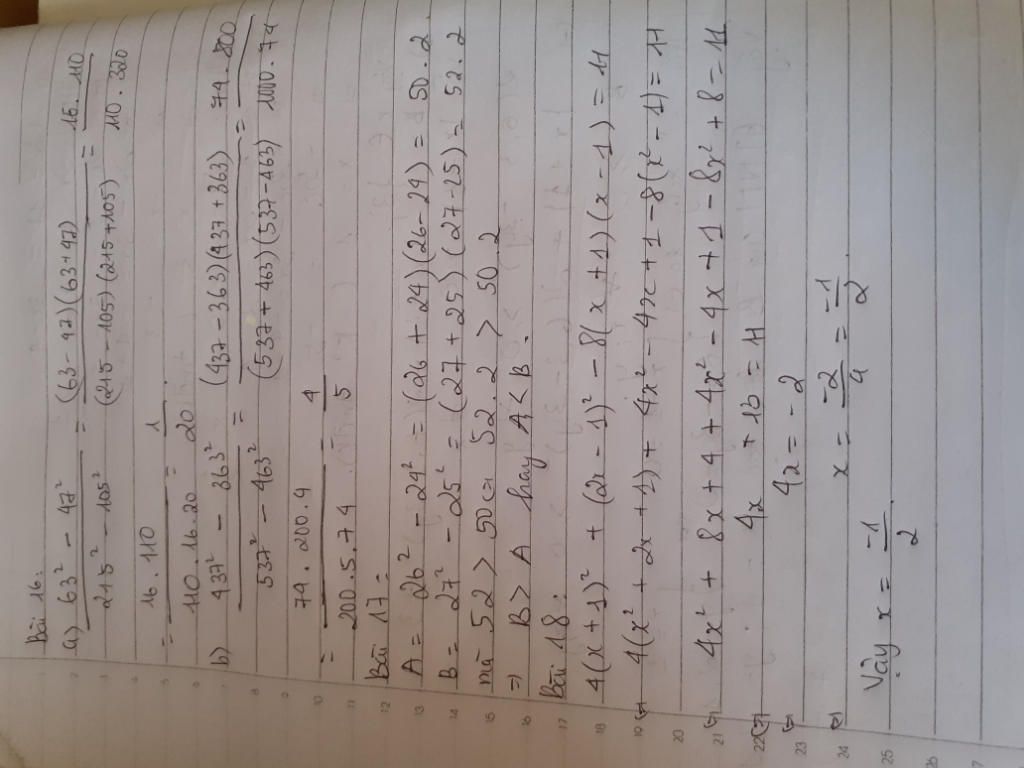 Bài 16:
a) (63² − 47²)/(215² − 105²) = ((63 − 47)(63 + 47))/((215 − 105)(215 + 105)) = (16.110)/(110.320)
= (16.110)/(110.16.20) = 1/20
b) (437² − 363²)/(537² − 463²) = ((437 − 363)(437 + 363))/((537 + 463)(537 − 463)) = (74.800)/(1000.74)
= (74.200.4)/(200.5.74) = 4/5
Bài 17:
A = 26² − 24² = (26 + 24)(26 − 24) = 50.2
B = 27² − 25² = (27 + 25)(27 − 25) = 52.2
mà 52 > 50 52.2 > 50.2
⇒ B > A hay A < B.
Bài 18:
4(x + 1)² + (2x − 1)² − 8(x + 1)(x − 1) = 11
⇔ 4(x² + 2x + 1) + 4x² − 4x + 1 − 8(x² − 1) = 11
⇔ 4x² + 8x + 4 + 4x² − 4x + 1 − 8x² + 8 = 11
⇔ 4x + 13 = 11
⇔ 4x = −2
⇔ x = −2/4 = −1/2.
Vậy x = −1/2